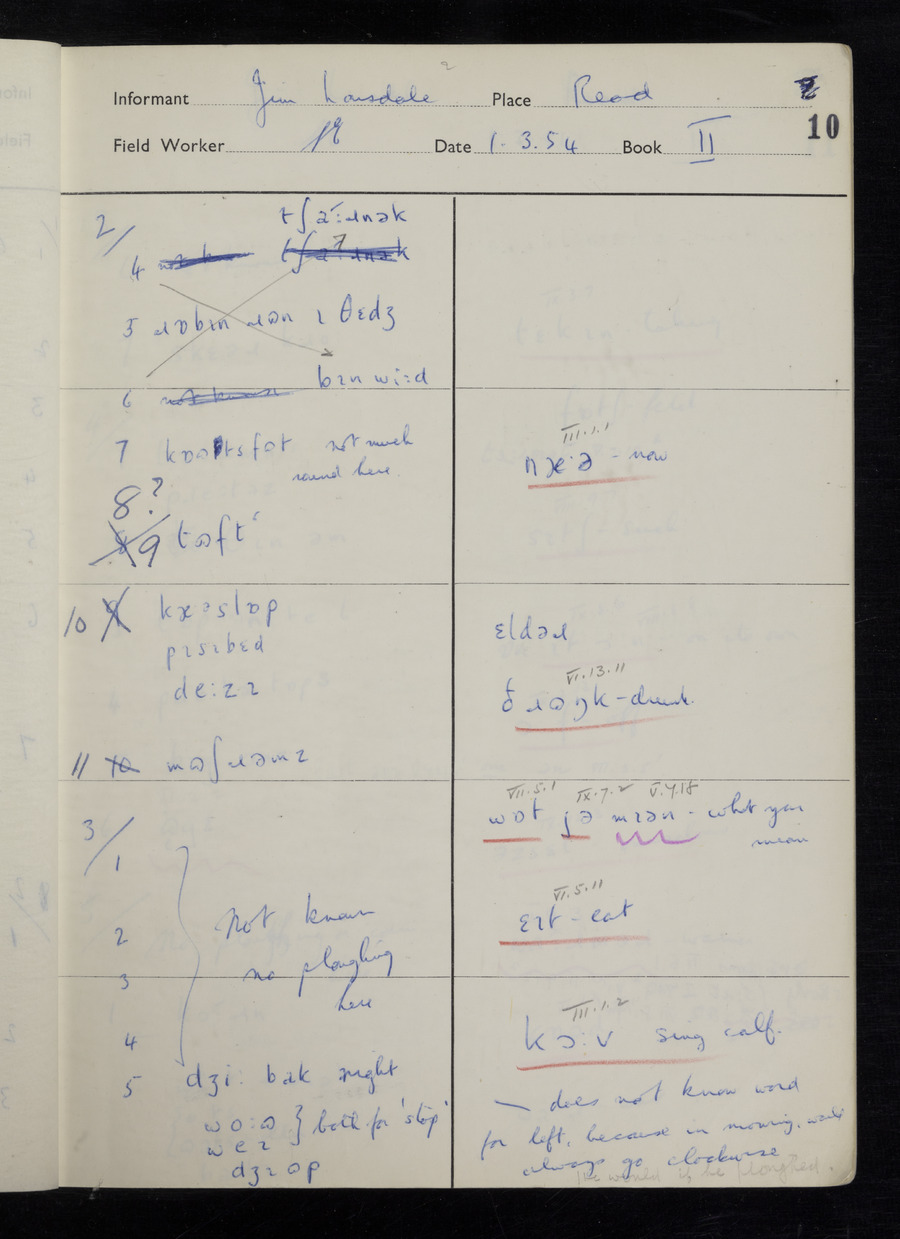 Informant Jim Lonsdale Place Read
10
Field Worker Date 1.3.54 Book II
2/
tʃaːɹnək
4
5 ɹɒbɪn ɹʊn ɪ θɛdʒ
6 bɪn wiːd
7 kɒʊltsfʊt not much
round here.
8?
9 tʊft
10 kæəslɒp
pɪsɪbɛd
deːzɪ
11 mʊʃɹəmz
3/
1
Not known
2
no ploughing
3
here
4
5 dʒiː bak right
woːʊ } both for 'stop'
weɪ
dʒɪʊp
III.1.1
næːə - now
ɛldəɹ
VI.13.11
dɹʊŋk - drunk.
VII.5.1 IX.7.2 V.7.18
wɒt jə mɪən - what you
mean
VI.5.11
ɛɪt - eat
III.1.2
kɔːv sing calf.
— does not know word
for left, because in mowing, would
always go clockwise